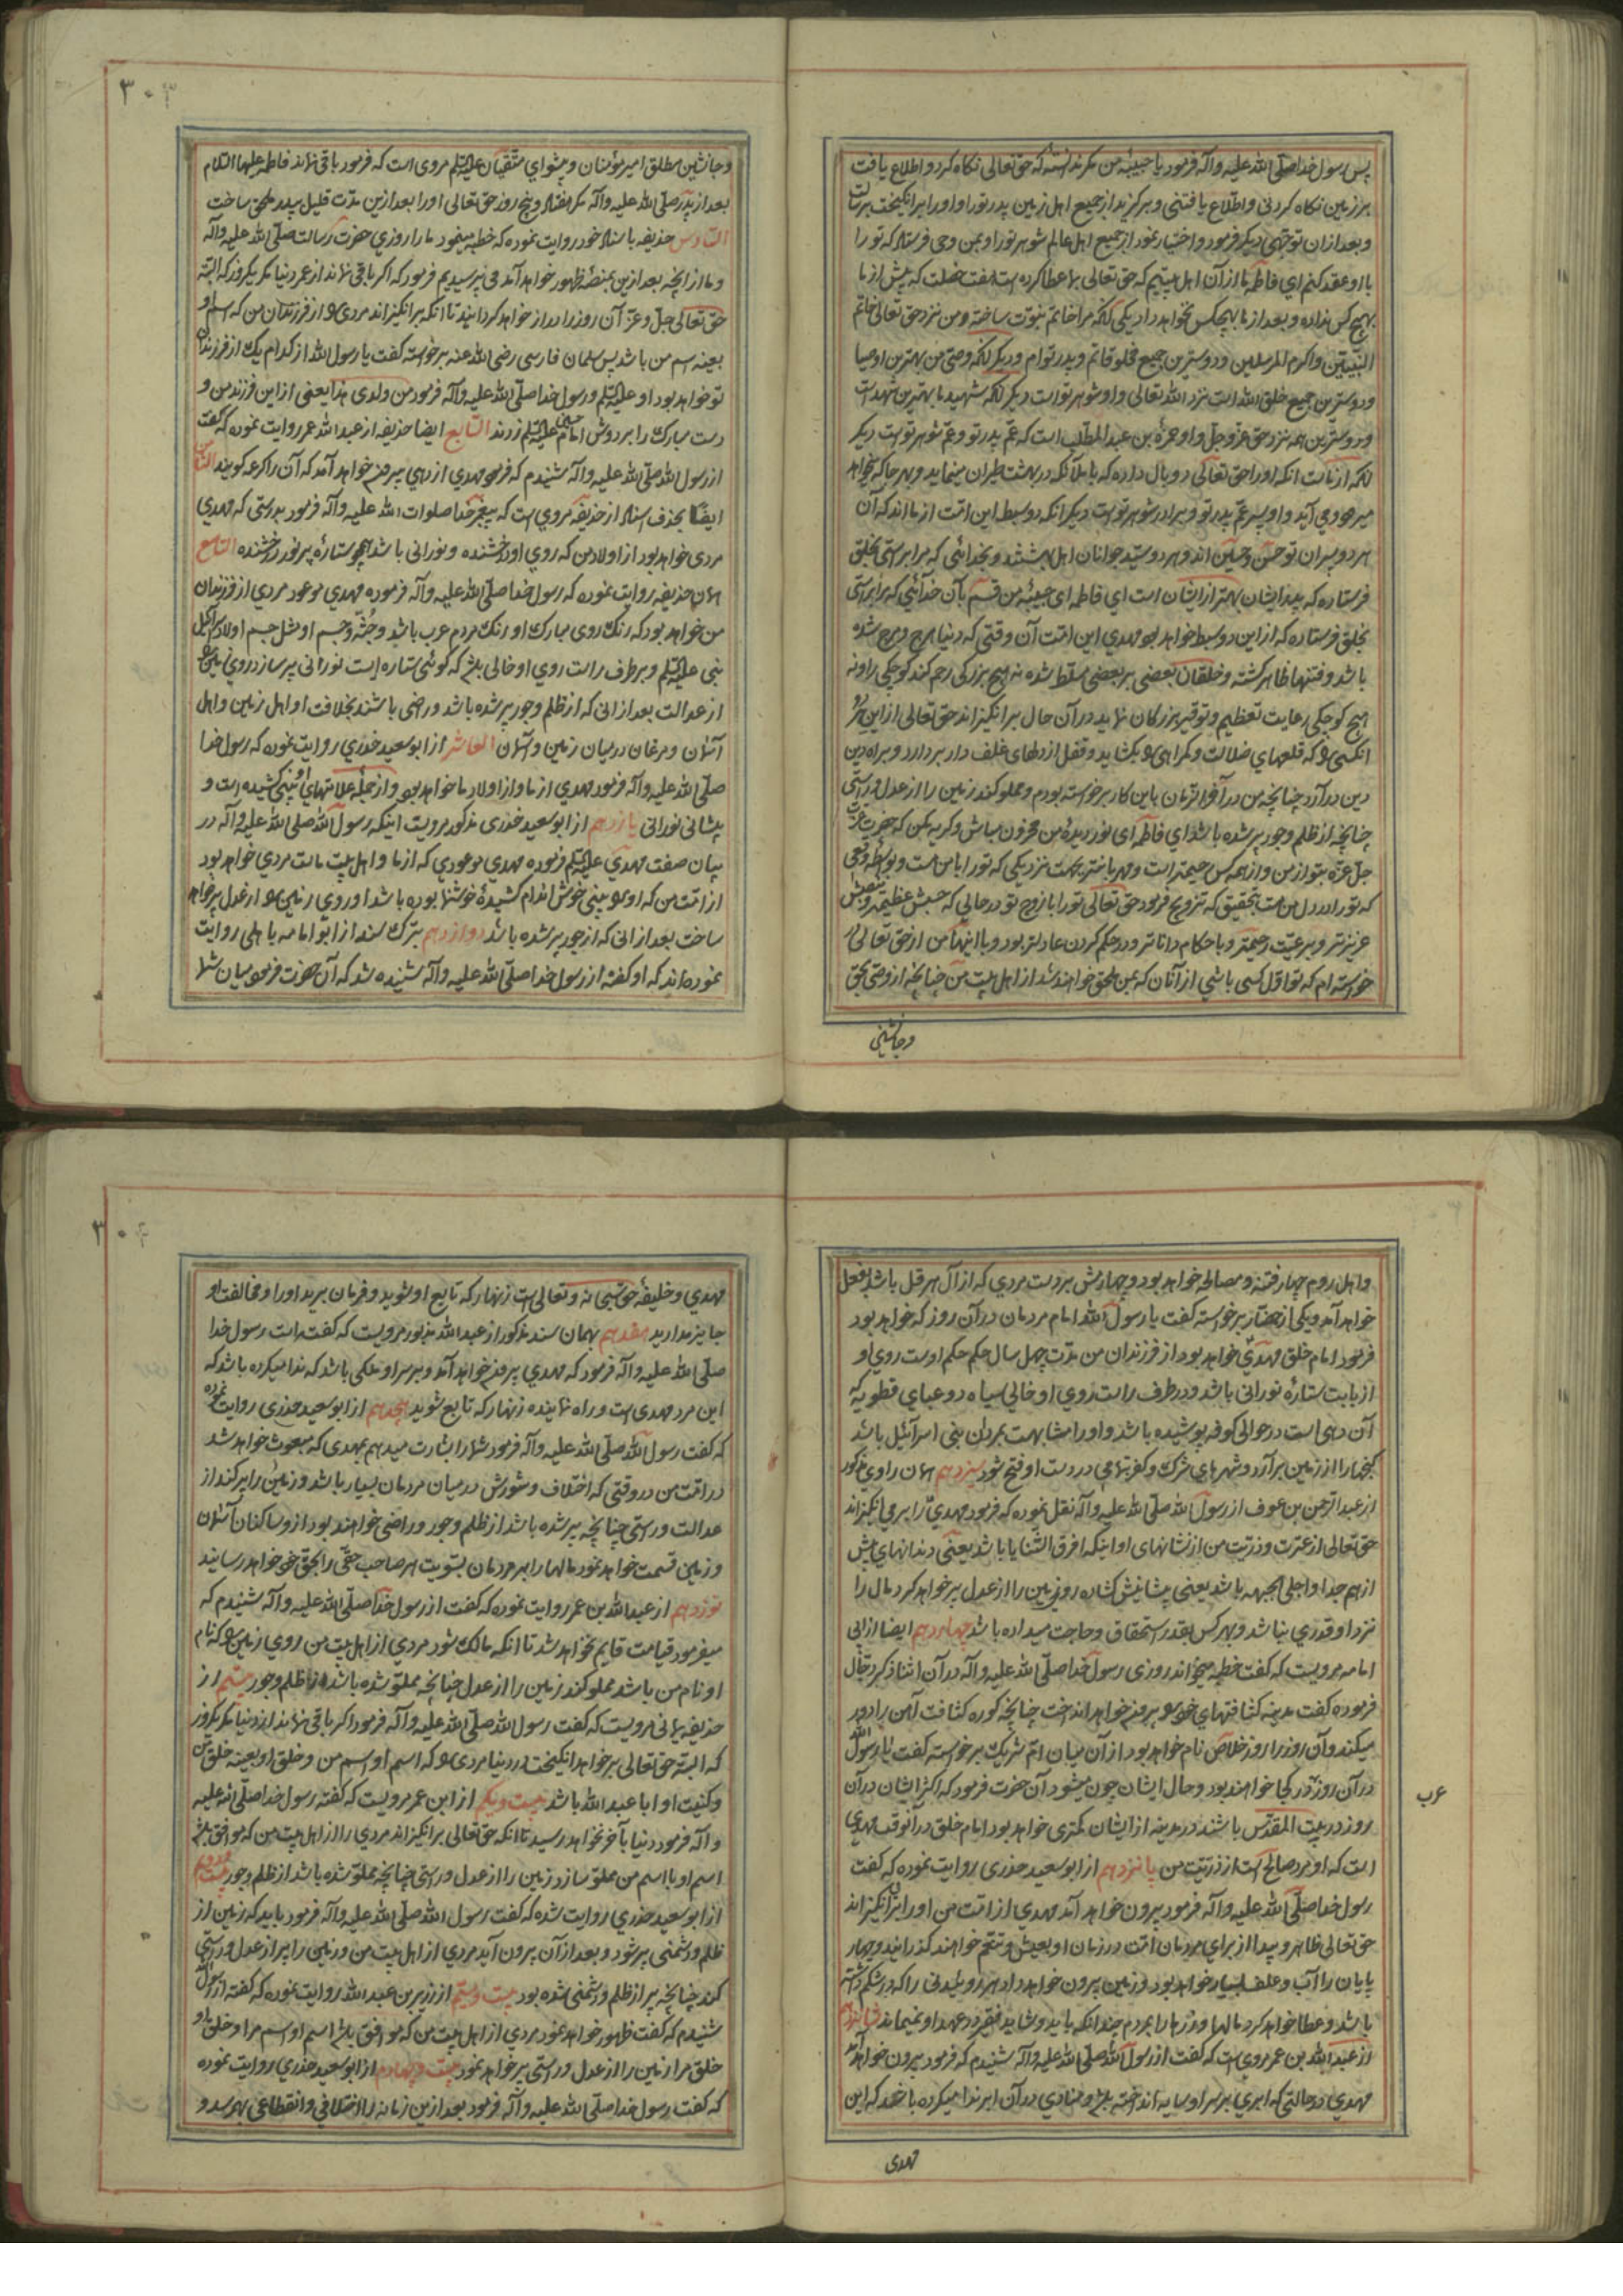 پس رسول خدا صلّی الله علیه و آله فرمود یا حبیبهٔ من مکر ندانسته که حق تعالی نکاه کرد و اطلاع یافت
بر زمین نکاه کردنی و اطلاع یافتنی و برکزید از جمیع اهل زمین پدر تو را و او را برانکیخت برسالت
و بعد از ان توجهی دیکر فرمود و اختیار نمود از جمیع اهل عالم شوهر تو را و بمن وحی فرستاد که تو را
با او عقد کنم ای فاطمه ما از آن اهل بیتیم که حق تعالی بما عطا کرده است هفت خصلت که پیش از ما
بهیچ کس نداده و بعد از ما بهیچکس نخواهد داد یکی آنکه مرا خاتم نبوّت ساخته و من نزد حق تعالی خاتم
النبیّین و اکرم المرسلین و دوسترین جمیع مخلوقاتم و پدر توام و دیکر آنکه وصی من بهترین اوصیا
و دوسترین جمیع خلق الله است نزد الله تعالی و او شوهر تو است دیکر آنکه شهید ما بهترین شهداست
و دوسترین همه نزد حق عزّ و جلّ و او حمزة بن عبد المطلب است که عمّ پدر تو و عمّ شوهر تو است دیکر
آنکه از ماست انکه او را حق تعالی دو بال داده که با ملائکه در بهشت طیران مینماید و بهر جا که میخواهد
میرود و می آید و او پسر عمّ پدر تو و برادر شوهر تو است دیکر انکه دو سبط این امّت از ما اند که آن
هر دو پسران تو حسن و حسین اند و هر دو سیّد جوانان اهل بهشتند و بخدائی که مرا براستی بخلق
فرستاده که پدر ایشان بهتر از ایشان است ای فاطمه ای حبیبهٔ من قسم بآن خدائی که مرا براستی
بخلق فرستاده که از این دو سبط خواهد بود مهدی این امّت آن وقتی که دنیا هرج و مرج شده
باشد و فتنها ظاهر کشته و خلقان بعضی بر بعضی مسلّط شده نه هیچ بزرکی رحم کند کوچکی را و نه
هیچ کوچکی رعایت تعظیم و توقیر بزرکان نماید در آن حال برانکیزاند حق تعالی از این هر دو
انکسی را که قلعهای ضلالت و کمراهی را بکشاید و قفل از دلهای غلف دار بردارد و براه دین
دین در آرد چنانچه من در آخر الزمان باین کار برخاسته بودم و مملو کند زمین را از عدل و راستی
چنانچه از ظلم و جور پر شده باشد ای فاطمه ای نور دیدهٔ من محزون مباش و کریه مکن که حضرت عزّت
جلّ عزّه بتو از من و از همه کس رحیمتر است و مهربانتر بجهت نزدیکی که تو را با من است و بواسطه وقعی
که تو را در دل من است بتحقیق که تزویج فرمود حق تعالی تو را با زوج تو در حالی که حسبش عظیمتر و نسبش
عزیزتر و برعیّت رحیمتر و باحکام داناتر و در حکم کردن عادلتر بود و با اینها من از حق تعالی
خواسته ام که تو اوّل کسی باشی از آنان که بمن ملحق خواهند شد از اهل بیت من چنانچه از وصی بحق
و جانشینی
٣٠٣
و جانشین مطلق امیر مؤمنان و پیشوای متّقیان علیه السّلم مروی است که فرمود باقی نماند فاطمه علیها السّلام
بعد از پدر صلّی الله علیه و آله مکر هفتاد و پنج روز حق تعالی او را بعد از این مدّت قلیل بپدر ملحق ساخت
السّادس حذیفه باسناد خود روایت نموده که خطبه میفرمود ما را روزی حضرت رسالت صلّی الله علیه و آله
و ما از انچه بعد از این بمنصّهٔ ظهور خواهد آمد می پرسیدیم فرمود که اکر باقی نماند از عمر دنیا مکر یکروز که البتّه
حق تعالی جلّ و عزّ آن روز را دراز خواهد کردانید تا انکه برانکیزاند مردی را از فرزندان من که اسم او
بعینه اسم من باشد پس سلمان فارسی رضی الله عنه برخواسته کفت یا رسول الله از کدام یک از فرزندان
تو خواهد بود او علیه السّلم و رسول خدا صلّی الله علیه و آله فرمود من ولدی هذا یعنی از این فرزند من و
دست مبارک را بر دوش امام حسین علیه السّلم زدند السّابع ایضا حذیفه از عبد الله عمر روایت نموده که کفت
از رسول الله صلّی الله علیه و آله شنیدم که فرمود مهدی از دهی بیرون خواهد آمد که آن را کرعه کویند الثّامن
ایضًا بحذف اسناد از حذیفه مروی است که پیغمبر خدا صلوات الله علیه و آله فرمود بدرستی که مهدی
مردی خواهد بود از اولاد من که روی او درخشنده و نورانی باشد همچو ستارهٔ پر نور درخشنده التّاسع
همان حذیفه روایت نموده که رسول خدا صلّی الله علیه و آله فرموده مهدی موعود مردی از فرزندان
من خواهد بود که رنک روی مبارک او رنک مردم عرب باشد و جُثّه و جسم او مثل جسم اولاد اسرائیل
نبی علیه السّلم و بر طرف راست روی او خالی باشد که کوئی ستاره ایست نورانی پر سازد روی زمین را
از عدالت بعد از انی که از ظلم و جور پر شده باشد و راضی باشند بخلافت او اهل زمین و اهل
آسمان و مرغان در میان زمین و آسمان العاشر از ابو سعید خدری روایت نموده که رسول خدا
صلّی الله علیه و آله فرمود مهدی از ما و از اولاد ما خواهد بود و از جمله علامتهای او بینی کشیده است و
پیشانی نورانی یازدهم از ابو سعید خدری مذکور مرویست اینکه رسول الله صلی الله علیه و آله در
بیان صفت مهدی علیه السّلم فرموده مهدی موعودی که از ما و اهل بیت ماست مردی خواهد بود
از امّت من که او را بینی خوش اندام کشیدهٔ خوشنما بوده باشد او روی زمین را از عدل پر خواهد
ساخت بعد از انی که از جور پر شده باشد دوازدهم بترک سند از ابو امامه باهلی روایت
نموده اند که او کفته از رسول خدا صلّی الله علیه و آله شنیده شد که آن حضرت فرمود میان شما
و اهل روم چهار فتنه و مصالحه خواهد بود و چهارمش بر دست مردی که از آل هرقل باشد بفعل
خواهد آمد و یکی از حضّار برخواسته کفت یا رسول الله امام مردمان در آن روز که خواهد بود
فرمود امام خلق مهدی خواهد بود از فرزندان من مدّت چهل سال حکم حکم اوست روی او
از بابت ستارهٔ نورانی باشد و در طرف راست روی او خالی سیاه دو عبای قطویه که
آن دهی است در حوالی کوفه پوشیده باشد و او را مشابهت بمردان بنی اسرائیل باشد
کنجها را از زمین بر آرد و شهرهای شرک و کفر بتمامی در دست او فتح شود سیزدهم همان راوی مذکور
از عبد الرّحمن بن عوف از رسول الله صلّی الله علیه و آله نقل نموده که فرمود مهدی را بر می انکیزاند
حق تعالی از عترت و ذرّیت من از نشانهای او اینکه افرق الثّنایا باشد یعنی دندانهای پیش
از هم جدا و اجلی الجبهه باشد یعنی پیشانیش کشاده روی زمین را از عدل پر خواهد کرد مال را
نزد او قدری نباشد و بهر کس بقدر استحقاق و حاجت میداده باشد چهاردهم ایضا از ابی
امامه مرویست که کفت خطبه میخواند روزی رسول خدا صلّی الله علیه و آله در آن اثنا ذکر دجّال
فرموده کفت مدینه کثافتهای خود را بیرون خواهد انداخت چنانچه کوره کثافت آهن را دور
میکند و آن روز را روز خلاص نام خواهد بود از آن میان امّ شریک برخواسته کفت یا رسول الله
در آن روز عرب در کجا خواهند بود و حال ایشان چون میشود آن حضرت فرمود که اکثر ایشان در آن
روز در بیت المقدّس باشند در مدینه از ایشان کمتری خواهد بود امام خلق در انوقت مهدی
است که او مرد صالح است از ذرّیت من پانزدهم از ابو سعید خدری روایت نموده که کفت
رسول خدا صلّی الله علیه و آله فرمود بیرون خواهد آمد مهدی از امّت من او را برانکیزاند
حق تعالی ظاهر و پیدا از برای مردمان امّت در زمان او بعیش و تنعّم خواهند کذرانید و چهار
پایان را آب و علف بسیار خواهد بود و زمین بیرون خواهد داد هر روئیدنی را که در شکم داشته
باشد و عطا خواهد کرد مالها و زرها را بمردم چندانکه باید و شاید فقیر در عهد او نمیماند شانزدهم
از عبد الله بن عمر مروی است که کفت از رسول الله صلّی الله علیه و آله شنیدم که فرمود بیرون خواهد آمد
مهدی در حالتی که ابری بر سر او سایه انداخته باشد و منادی در آن ابر ندا میکرده باشد که این
عرب
مهدی
٣٠٤
مهدی و خلیفهٔ حق سبحانه و تعالی است زنهار که تابع او شوید و فرمان برید او را و مخالفت او
جایز مدارید هفدهم بهمان سند مذکور از عبد الله مزبور مرویست که کفته است رسول خدا
صلّی الله علیه و آله فرمود که مهدی بیرون خواهد آمد و بر سر او ملکی باشد که ندا میکرده باشد که
این مرد مهدی است و راه نماینده زنهار که تابع شوید هجدهم از ابو سعید خدری روایت نموده
که کفت رسول الله صلّی الله علیه و آله فرمود شما را بشارت میدهم بمهدی که مبعوث خواهد شد
در امّت من در وقتی که اختلاف و شورش در میان مردمان بسیار باشد و زمین را پر کند از
عدالت و راستی چنانچه پر شده باشد از ظلم و جور و راضی خواهند بود از و ساکنان آسمان
و زمین قسمت خواهد نمود مالها را بمردمان بتسویت هر صاحب حقّی را بحقّ خود خواهد رسانید
نوزدهم از عبد الله بن عمر روایت نموده که کفت از رسول خدا صلّی الله علیه و آله شنیدم که
میفرمود قیامت قایم نخواهد شد تا انکه مالک شود مردی از اهل بیت من روی زمین را که نام
او نام من باشد مملو کند زمین را از عدل چنانچه مملوّ شده باشد از ظلم و جور بیستم از
حذیفه یمانی مرویست که کفت رسول الله صلّی الله علیه و آله فرمود اکر باقی نماند از دنیا مکر یکروز
که البتّه حق تعالی بر خواهد انکیخت در دنیا مردی را که اسم او اسم من و خلق او بعینه خلق من
و کنیت او ابا عبد الله باشد بیست و یکم از ابن عمر مرویست که کفته رسول خدا صلّی الله علیه
و آله فرمود دنیا بآخر نخواهد رسید تا انکه حق تعالی برانکیزاند مردی را از اهل بیت من که موافق باشد
اسم او با اسم من مملوّ سازد زمین را از عدل و راستی چنانچه مملوّ شده باشد از ظلم و جور بیست و دوم
از ابو سعید خدری روایت شده که کفت رسول الله صلّی الله علیه و آله فرمود باید که زمین از
ظلم و دشمنی پر شود و بعد از آن بیرون آید مردی از اهل بیت من و زمین را پر از عدل و راستی
کند چنانچه پر از ظلم و دشمنی شده بود بیست و سیّم از زر بن عبد الله روایت نموده که کفته از رسول الله
شنیدم که کفت ظهور خواهد نمود مردی از اهل بیت من که موافق باشد اسم او اسم مرا و خلق او
خلق مرا زمین را از عدل و راستی پر خواهد نمود بیست و چهارم از ابو سعید خدری روایت نموده
که کفت رسول خدا صلّی الله علیه و آله فرمود بعد از این زمانه را اختلافی و انقطاعی بهرسد و